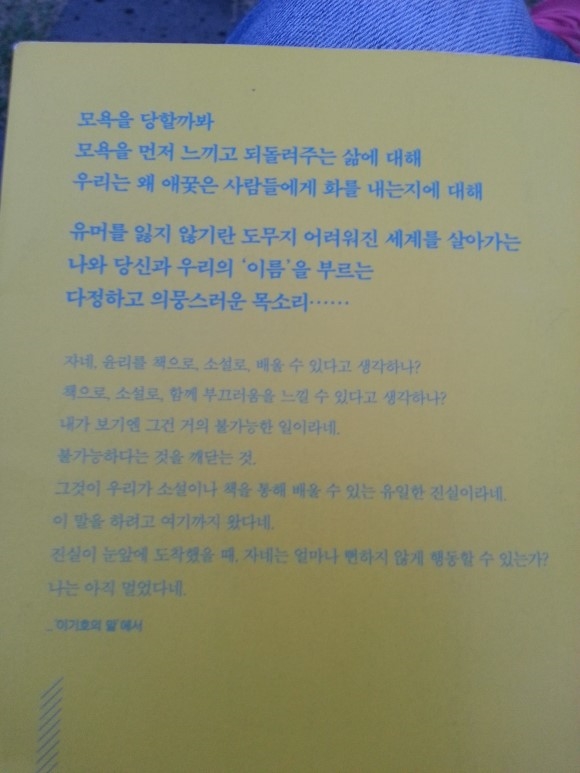 모욕을 당할까봐
모욕을 먼저 느끼고 되돌려주는 삶에 대해
우리는 왜 애꿎은 사람들에게 화를 내는지에 대해
유머를 잃지 않기란 도무지 어려워진 세계를 살아가는
나와 당신과 우리의 ‘이름’을 부르는
다정하고 의뭉스러운 목소리……
자네, 윤리를 책으로, 소설로, 배울 수 있다고 생각하나?
책으로, 소설로, 함께 부끄러움을 느낄 수 있다고 생각하나?
내가 보기엔 그건 거의 불가능한 일이라네.
불가능하다는 것을 깨닫는 것.
그것이 우리가 소설이나 책을 통해 배울 수 있는 유일한 진실이라네.
이 말을 하려고 여기까지 왔다네.
진실이 눈앞에 도착했을 때, 자네는 얼마나 뻔하지 않게 행동할 수 있는가?
나는 아직 멀었다네.
_'이기호의 말'에서